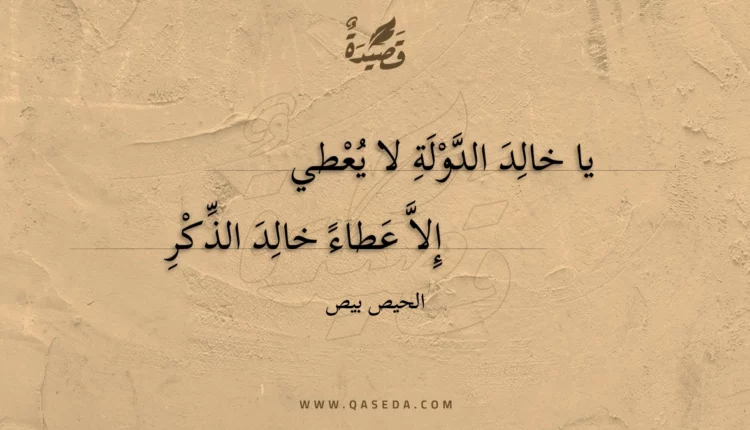 قَصِيْدَةٌ
يا خالِدَ الدَّوْلَةِ لا يُعْطي
إِلاَّ عَطاءً خالِدَ الذِّكْرِ
الحيص بيص
WWW.QASEDA.COM